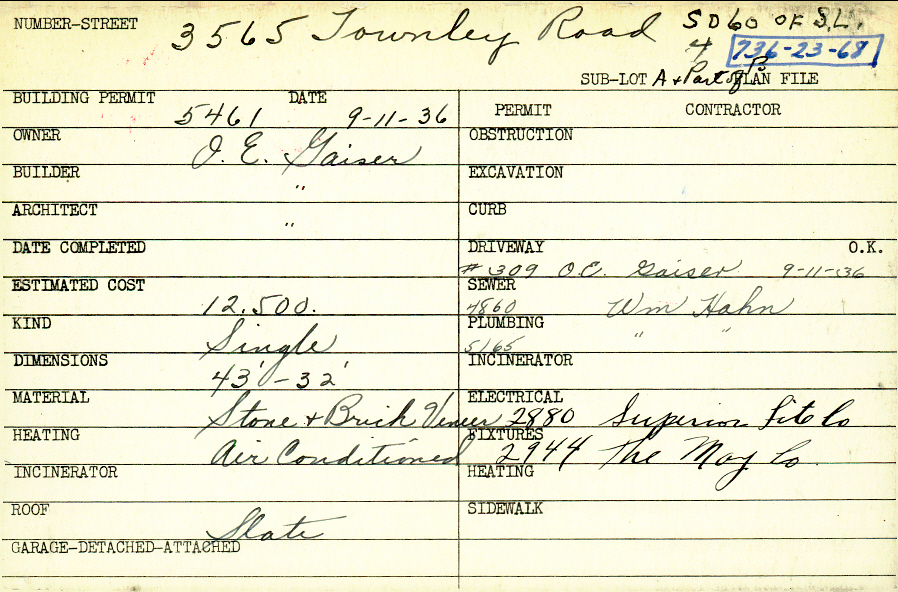 NUMBER-STREET 3565 Townley Road SD60 OF S.L.
4 736-23-68
SUB-LOT A + Part of B PLAN FILE
BUILDING PERMIT 5461 DATE 9-11-36
PERMIT CONTRACTOR
OWNER O. E. Gaiser
OBSTRUCTION
BUILDER "
EXCAVATION
ARCHITECT "
CURB
DATE COMPLETED
DRIVEWAY O.K.
# 309 O.E. Gaiser 9-11-36
ESTIMATED COST 12.500.
SEWER 4860 Wm Hahn
KIND Single
PLUMBING 5165 " "
DIMENSIONS 43' - 32'
INCINERATOR
MATERIAL Stone + Brick Veneer
ELECTRICAL 2880 Superior Co
HEATING Air Conditioned
FIXTURES 2944 The May Co.
INCINERATOR
HEATING
ROOF Slate
SIDEWALK
GARAGE-DETACHED-ATTACHED